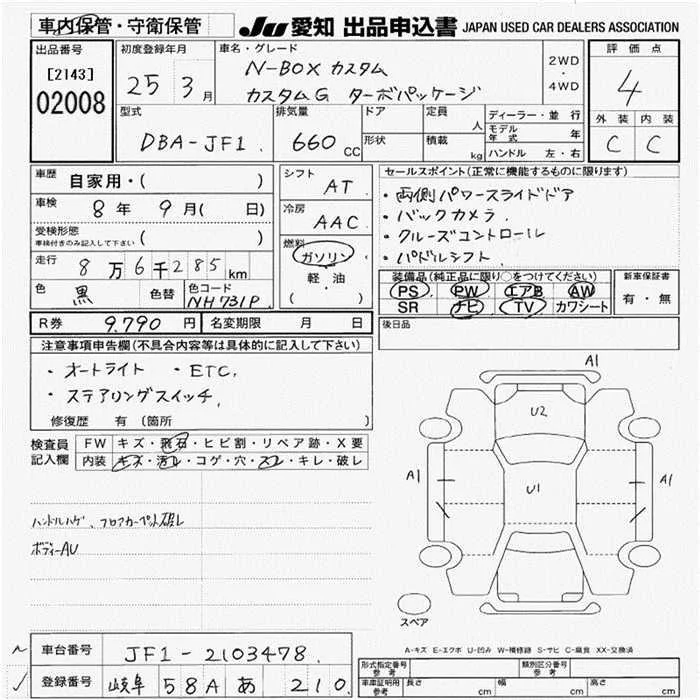 車内保管・守衛保管 JU愛知 出品申込書 JAPAN USED CAR DEALERS ASSOCIATION
出品番号 初度登録年月 車名・グレード 評価点
[2143] 25 3月 N-BOX カスタム 2WD・4WD 4
02008 カスタムG ターボパッケージ
型式 排気量 ドア 定員 人 ディーラー・並行 外装 内装
DBA-JF1. 660cc 形状 積載 kg モデル年式 年 C C
ハンドル 左・右
車歴 自家用・( )
シフト AT
セールスポイント(正常に機能するものに限ります)
車検 8年 9月( 日)
冷房 AAC
・両側パワースライドドア
・バックカメラ.
・クルーズコントロール
・パドルシフト.
受検形態 車検付きのみ記入して下さい ( )
燃料 ガソリン
軽・油
( )
走行 8万6千285km
色 黒 色替 色コード NH731P
装備品(純正品に限り○をつけてください) 新車保証書
PS PW エアB AW 有・無
SR ナビ TV カワシート
R券 9.790円 名変期限 月 日
後日品
注意事項申告欄(不具合内容等は具体的に記入して下さい)
・オートライト ・ETC.
・ステアリングスイッチ.
修復歴 有(箇所 )
検査員記入欄
FW キズ・飛石・ヒビ割・リペア跡・X要
内装 キズ・汚レ・コゲ・穴・スレ・キレ・破レ
ハンドルハゲ、フロアカーペット破レ
ボディーAU
A1
U2
A1 U1 A1
スペア
A-キズ E-エクボ U-凹み W-補修跡 S-サビ C-腐食 XX-交換済
車台番号 JF1-2103478.
登録番号 岐阜 58A あ 210
形式指定番号 参考 類別区分番号 参考
車庫証明用 参考 長さ cm 幅 cm 高さ cm